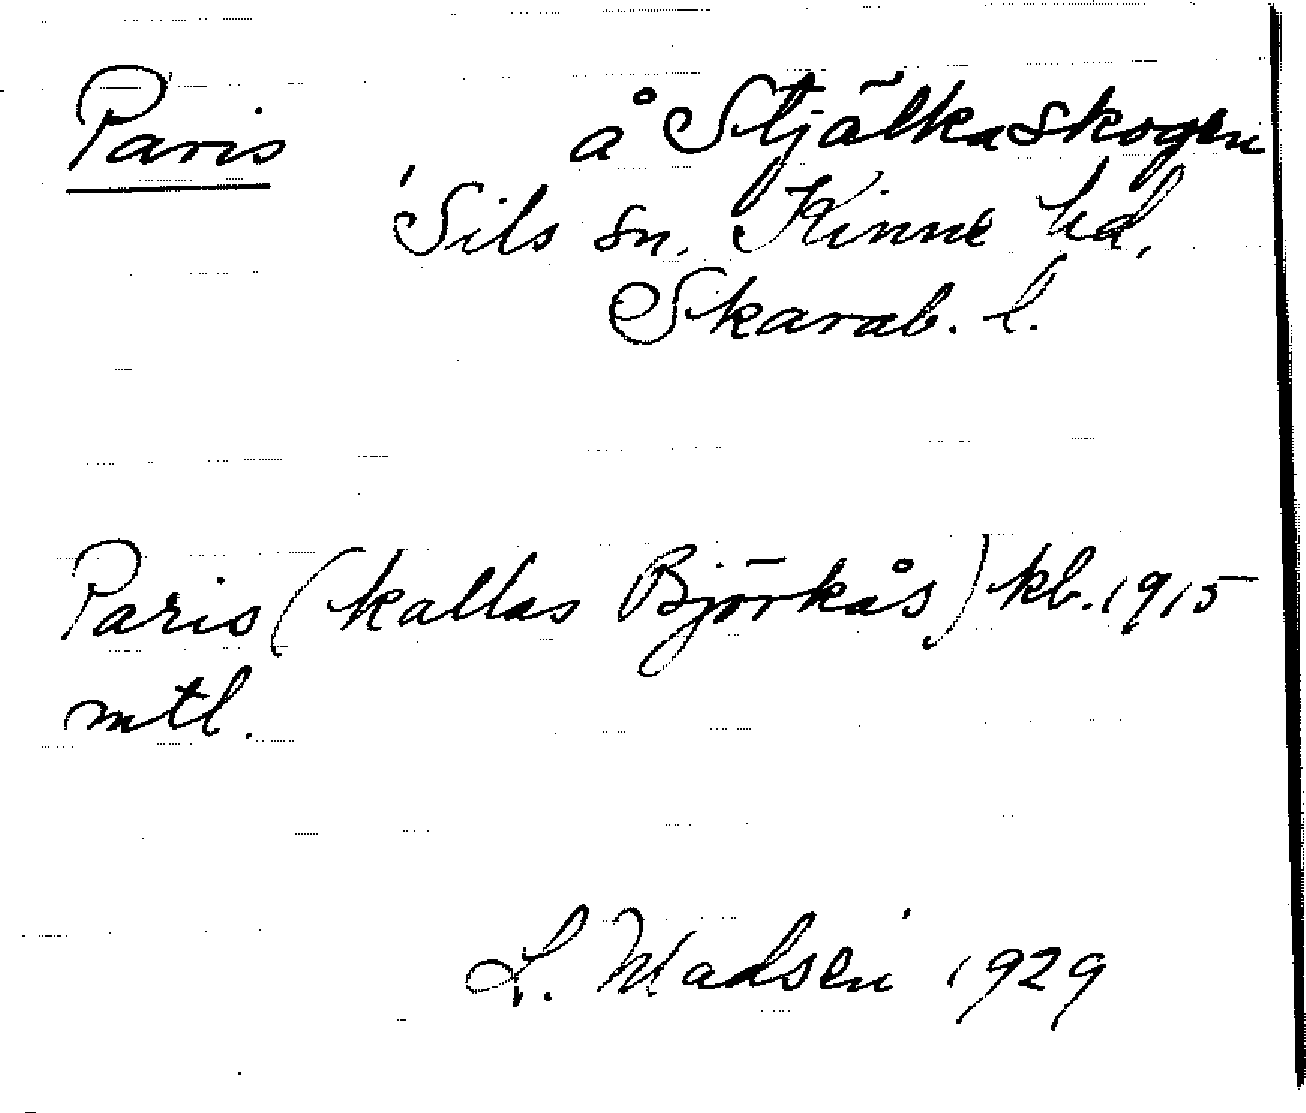 Paris å Stjälkaskogen
Sils sn. Kinne hd,
Skarab. l.
Paris (kallas Björkås) kb. 1915
mtl.
L. Madsen 1929